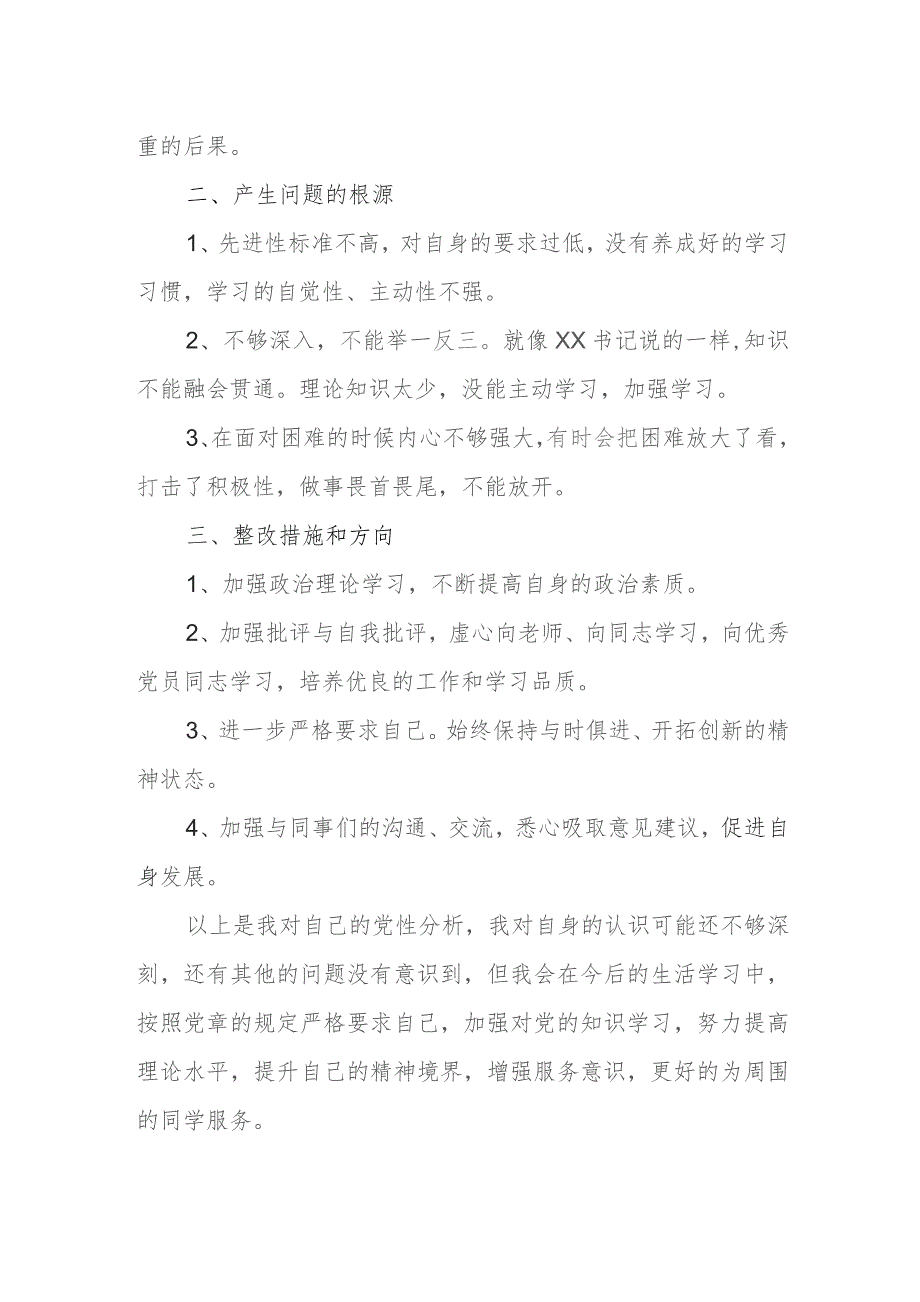 重的后果。
二、产生问题的根源
1、先进性标准不高，对自身的要求过低，没有养成好的学习
习惯，学习的自觉性、主动性不强。
2、不够深入，不能举一反三。就像 XX 书记说的一样,知识
不能融会贯通。理论知识太少，没能主动学习，加强学习。
3、在面对困难的时候内心不够强大，有时会把困难放大了看，
打击了积极性，做事畏首畏尾，不能放开。
三、整改措施和方向
1、加强政治理论学习，不断提高自身的政治素质。
2、加强批评与自我批评，虚心向老师、向同志学习，向优秀
党员同志学习，培养优良的工作和学习品质。
3、进一步严格要求自己。始终保持与时俱进、开拓创新的精
神状态。
4、加强与同事们的沟通、交流，悉心吸取意见建议，促进自
身发展。
以上是我对自己的党性分析，我对自身的认识可能还不够深
刻，还有其他的问题没有意识到，但我会在今后的生活学习中，
按照党章的规定严格要求自己，加强对党的知识学习，努力提高
理论水平，提升自己的精神境界，增强服务意识，更好的为周围
的同学服务。